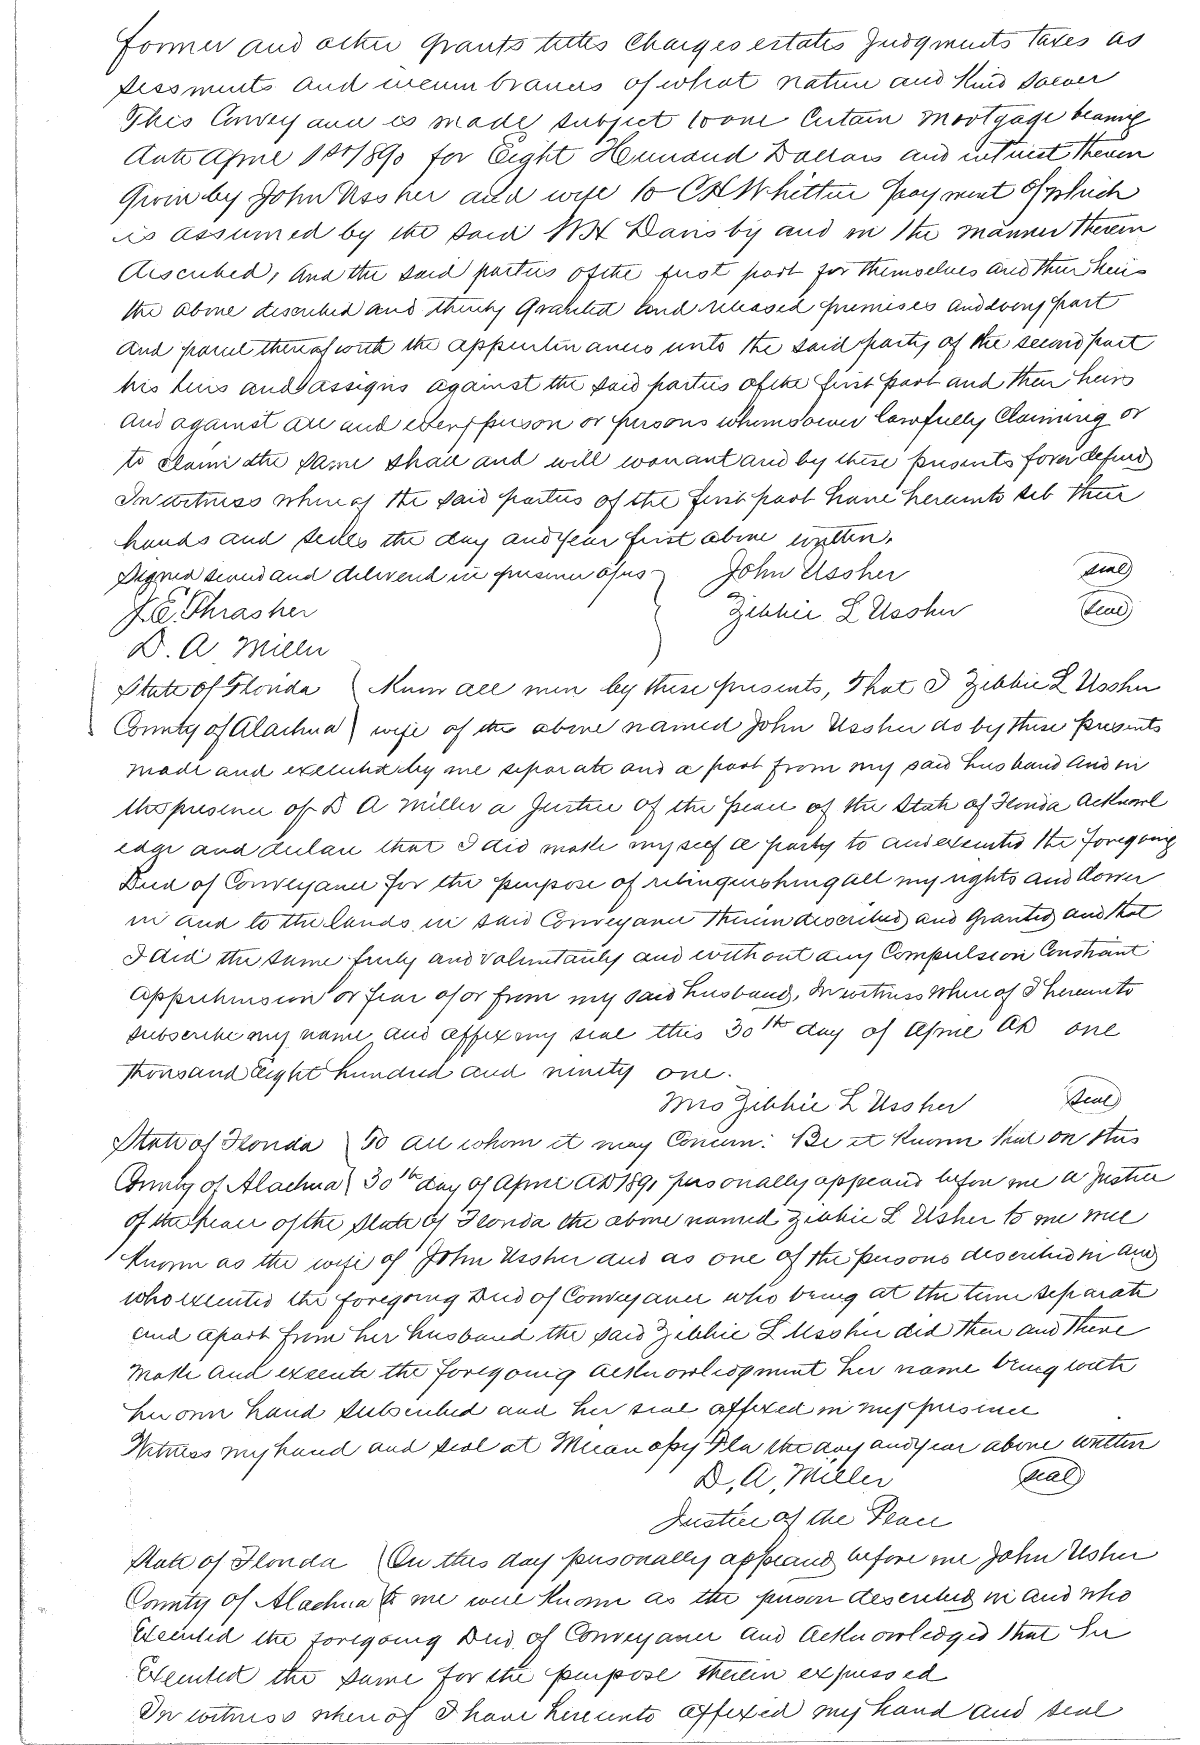 former and other grants titles Charges estates Judgments Taxes as
sessments and incumbrances of what nature and Kind soever
This Conveyance is made subject to one Certain Mortgage bearing
date April 1st 1890 for Eight Hundred Dollars and interest thereon
Given by John Ussher and wife to C H Whittier payment of which
is assumed by the said W H Danisby and in the manner therein
described, And the said parties of the first part for themselves and their heirs
the above described and thereby Granted and released premises and every part
and parcel thereof with the appurtenances unto the said party of the second part
his heirs and assigns against the said parties of the first part and their heirs
And against all and every person or persons whomsoever lawfully Claiming or
to claim the same shall and will warrant and by these presents forever defend
In witness where of the said parties of the first part have hereunto set their
hands and seales the day and year first above written.
Signed sealed and delivered in presence of us John Ussher seal
J. E. Thrasher Zibbie L Ussher Seal
D. A. Miller
State of Florida Know all men by these presents, That I Zibbie L Ussher
County of Alachua wife of the above named John Ussher do by these presents
made and executed by me separate and a part from my said husband and in
the presence of D A Miller a Justice of the peace of the State of Florida Acknowl
edge and declare that I did make myself a party to and executed the foregoing
Deed of Conveyance for the purpose of relinquishing all my rights and Dower
in and to the lands in said Conveyance therein described and Granted and that
I did the same freely and voluntarily and without any Compulsion Constraint
apprehension or fear of or from my said husband, In witness where of I hereunto
subscribe my name and affix my seal this 30th day of April AD one
thousand Eight hundred and ninety one.
Mrs Zibbie L Ussher Seal
State of Florida To all whom it may Concern: Be it Known that on this
County of Alachua 30th day of April AD 1891 personally appeared before me a Justice
of the peace of the State of Florida the above named Zibbie L Usher to me well
Known as the wife of John Ussher and as one of the persons described in and
who executed the foregoing Deed of Conveyance who being at the time separate
and apart from her husband the said Zibbie L Ussher did then and there
make and execute the foregoing acknowledgment her name being with
her own hand subscribed and her seal affixed in my presence
Witness my hand and seal at Micanopy Fla the day and year above written
D. A. Miller seal
Justice of the Peace
State of Florida On this day personally appeared before me John Usher
County of Alachua to me well Known as the person described in and who
Executed the foregoing Deed of Conveyance and Acknowledged that he
Executed the same for the purpose therein expressed
In witness where of I have hereunto affixed my hand and seal